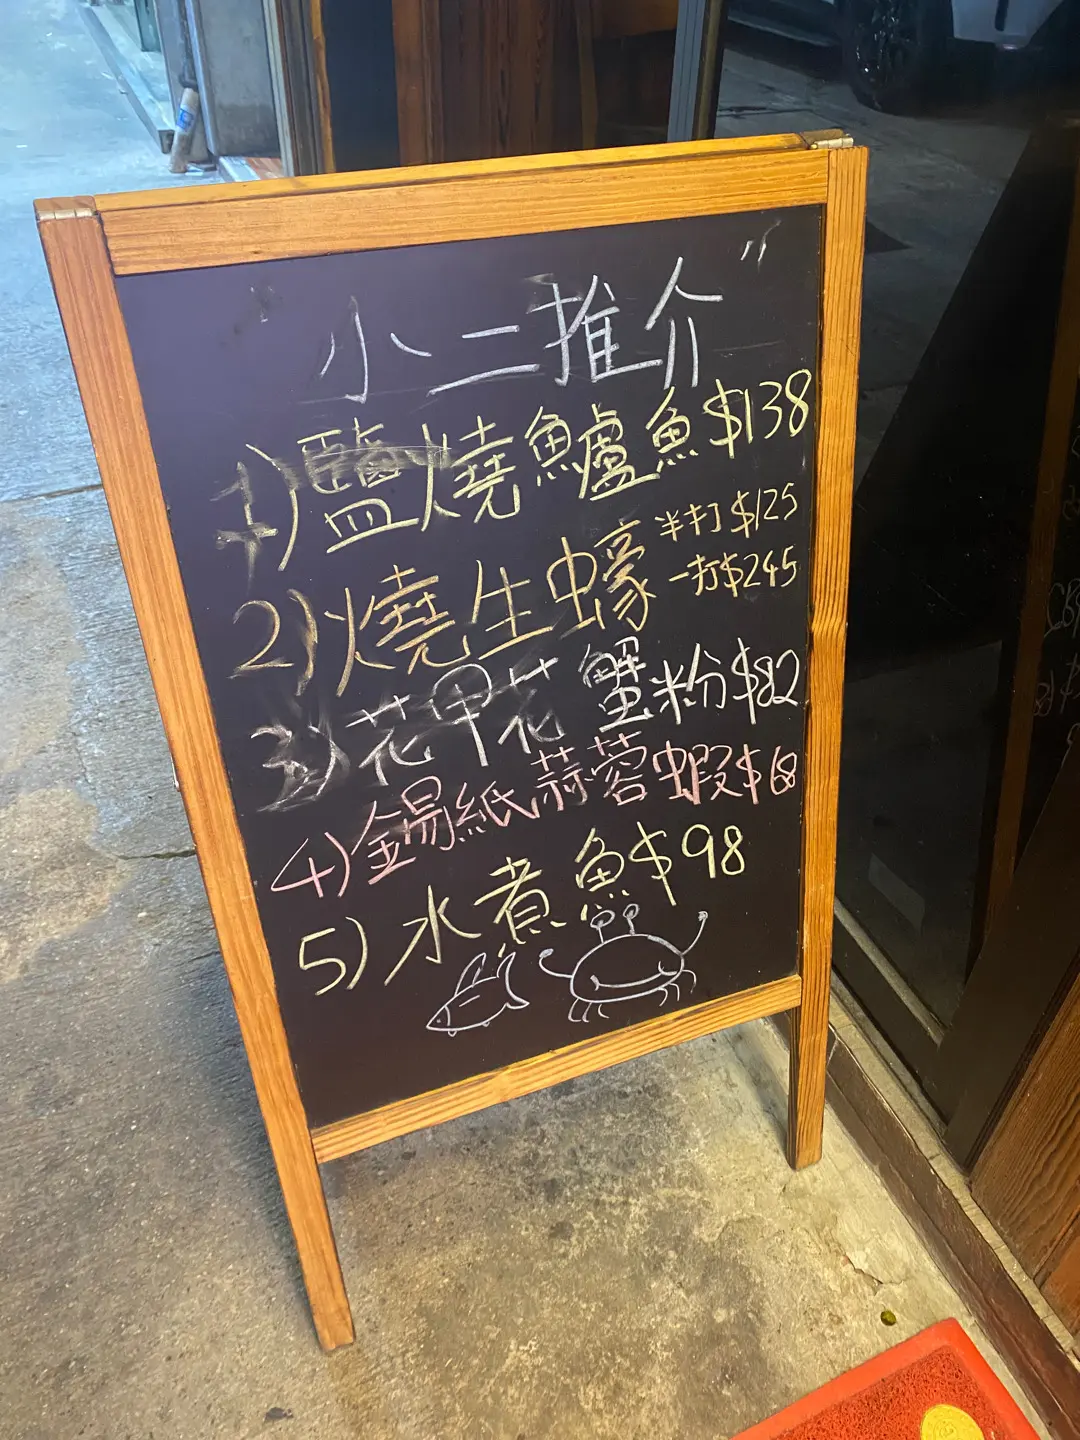 "小二推介"
1)鹽燒鱸魚$138
2)燒生蠔 半打$125
一打$245
3)花甲花蟹粉$82
4)錫紙蒜蓉蝦$68
5)水煮魚$98